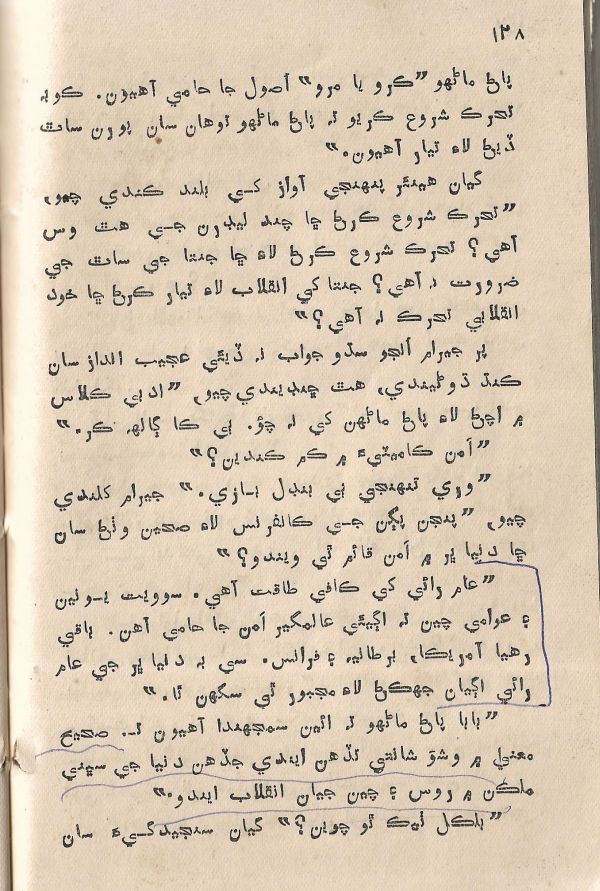 ۱۲۸
پاڻ ماڻهو ”ڪرو يا مرو“ اصول جا حامي آهيون. ڪوبہ
تحرڪ شروع ڪريو تہ پاڻ ماڻهو توهان سان پورن ساٿ
ڏيڻ لاءِ تيار آهيون.“
گيان هينئر پنهنجي آواز کي بلند ڪندي چيو،
”تحرڪ شروع ڪرڻ ڇا چند ليڊرن جي هٿ وس
آهي؟ تحرڪ شروع ڪرڻ لاءِ ڇا جنتا جي ساٿ جي
ضرورت نہ آهي؟ جنتا کي انقلاب لاءِ تيار ڪرڻ ڇا خود
انقلابي تحرڪ نہ آهي؟“
پر جيرام انجو سڌو جواب نہ ڏيئي عجيب انداز سان
ڪنڌ ڌوڻيندي، هٿ ڇنڊيندي چيو، ”ادبي ڪلاس
۾ اچڻ لاءِ پاڻ ماڻهن کي نہ چؤ. ٻي ڪا ڳالهہ ڪر.“
”امن ڪاميٽيءَ ۾ ڪم ڪندين؟“
”وري تنهنجي ٻي بنڊل بازي.“ جيرام کلندي
چيو، ”پنجن پڳن جي ڪانفرنس لاءِ صحيون وٺڻ سان
ڇا دنيا ڀر ۾ امن قائم ٿي ويندو؟“
”عام رائي کي ڪافي طاقت آهي. سوويت يونين
۽ عوامي چين تہ اڳيئي عالمگير امن جا حامي آهن. باقي
رهيا آمريڪا، برطانيہ ۽ فرانس. سي بہ دنيا ڀر جي عام
رائي اڳيان جهڪڻ لاءِ مجبور ٿي سگهن ٿا.“
”بابا پاڻ ماڻهو تہ ائين سمجهندا آهيون تہ صحيح
معنيٰ ۾ وشو شانتي تڏهن ايندي جڏهن دنيا جي سڀني
ملڪن ۾ روس ۽ چين جيان انقلاب ايندو.“
”بلڪل ٺيڪ ٿو چوين؟“ گيان سنجيدگيءَ سان